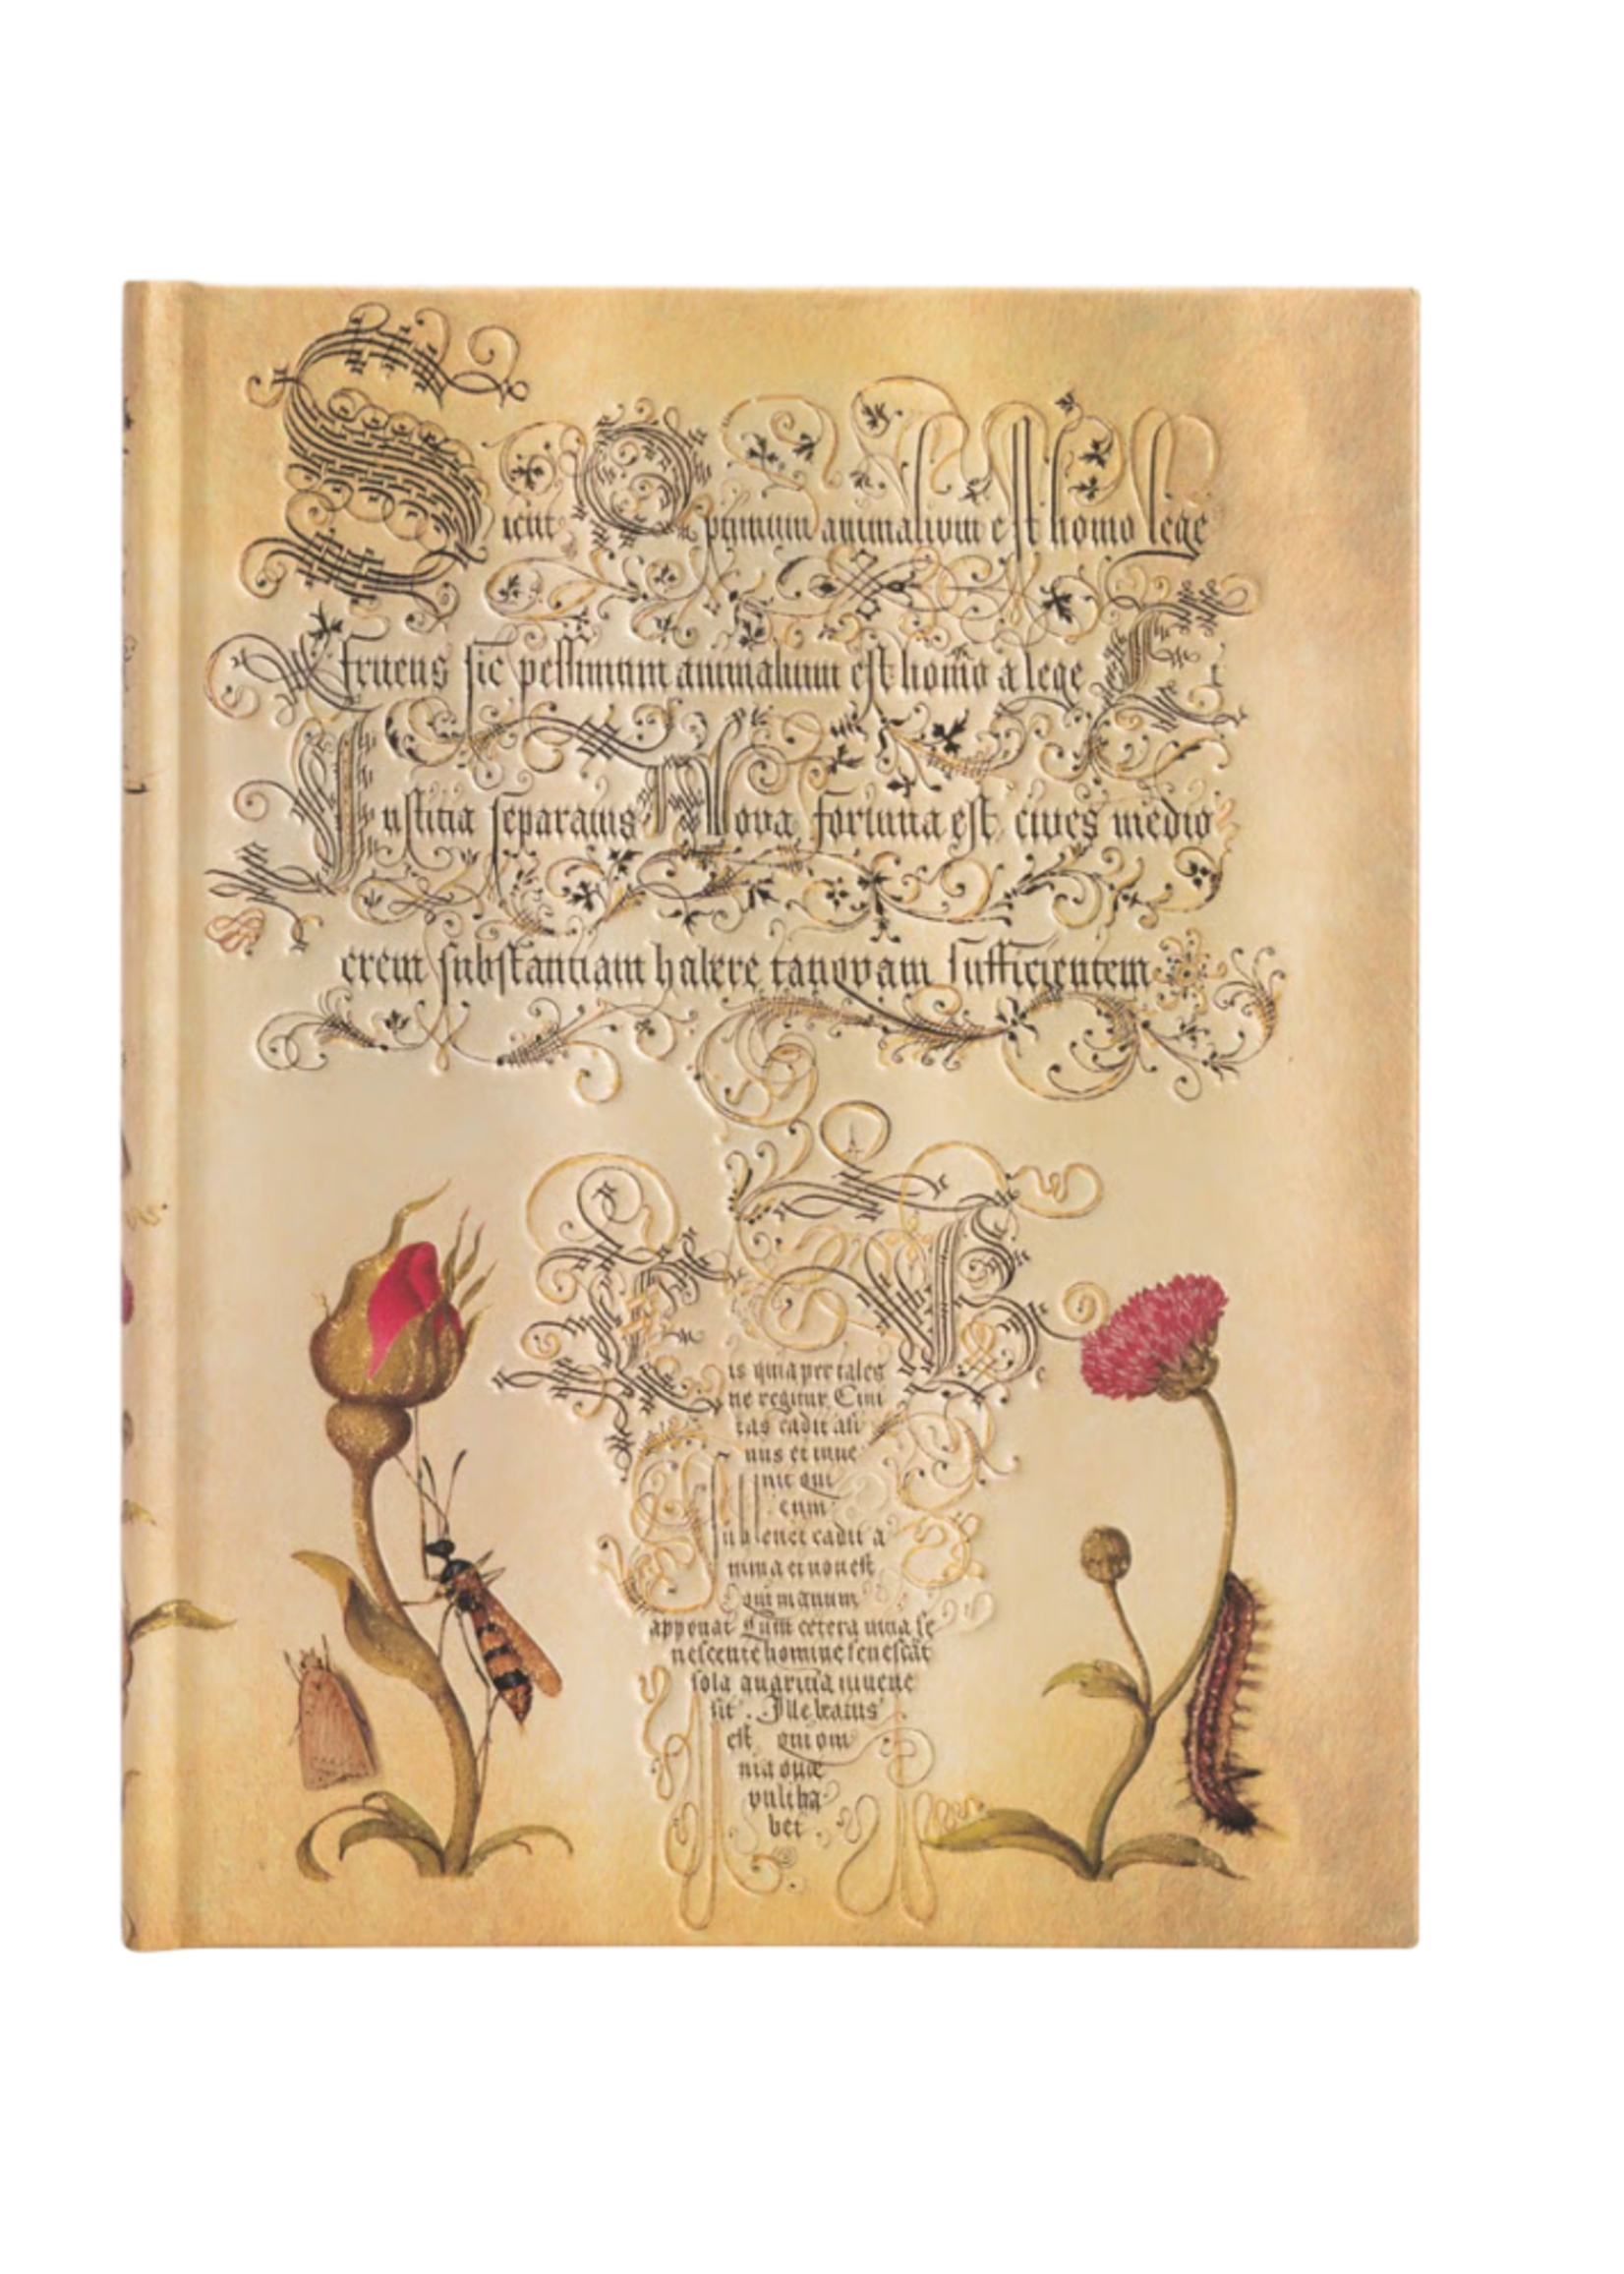 Sicut Optimum animalium est homo lege
fruens sic pessimum animalium est homo a lege Et
Iustitia separatus Nova fortuna est cives medio
crem substantiam habere tanquam sufficientem
is quia per tales
ne regitur Civi
tas cadit asi
nus et inve
nit qui
eum
sublevet cadit a
nima et non est
qui manum
apponat Cum cetera vitia se
nescente homine senescāt
sola avaritia iuvene
sit . Ille beatus
est qui om
nia quæ
vult ha
bet .